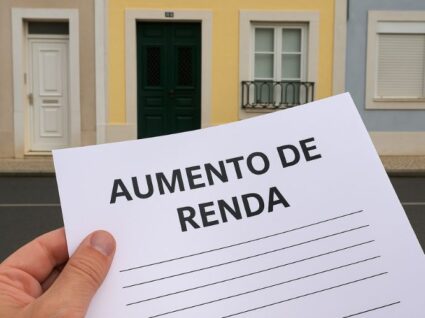 AUMENTO DE
RENDA